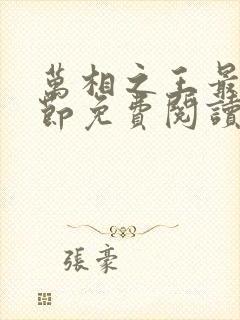 萬相之王最
節免費閱讀
張豪